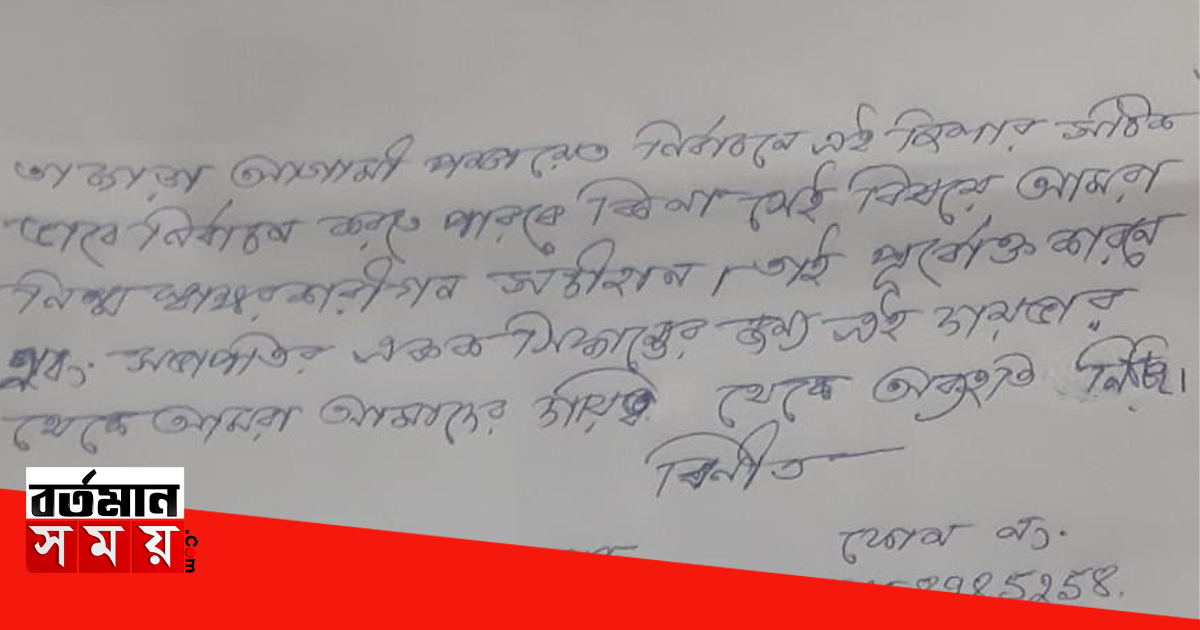 তাছাড়া আগামী পঞ্চায়েত নির্বাচনে এই টিমকে সঠিক
ভাবে নির্বাচন করতে পারবে কিনা সেই বিষয়ে আমরা
নিম্ন স্বাক্ষরকারীগন সন্দীহান। তাই পূর্বোক্ত কারনে
এবং সভাপতির একক সিদ্ধান্তের জন্য এই দায়ভার
থেকে আমরা আমাদের দায়িত্ব থেকে অব্যহতি নিচ্ছি।
বিনীত
ফোন নং.
85258.
বর্তমান
সময়
.com